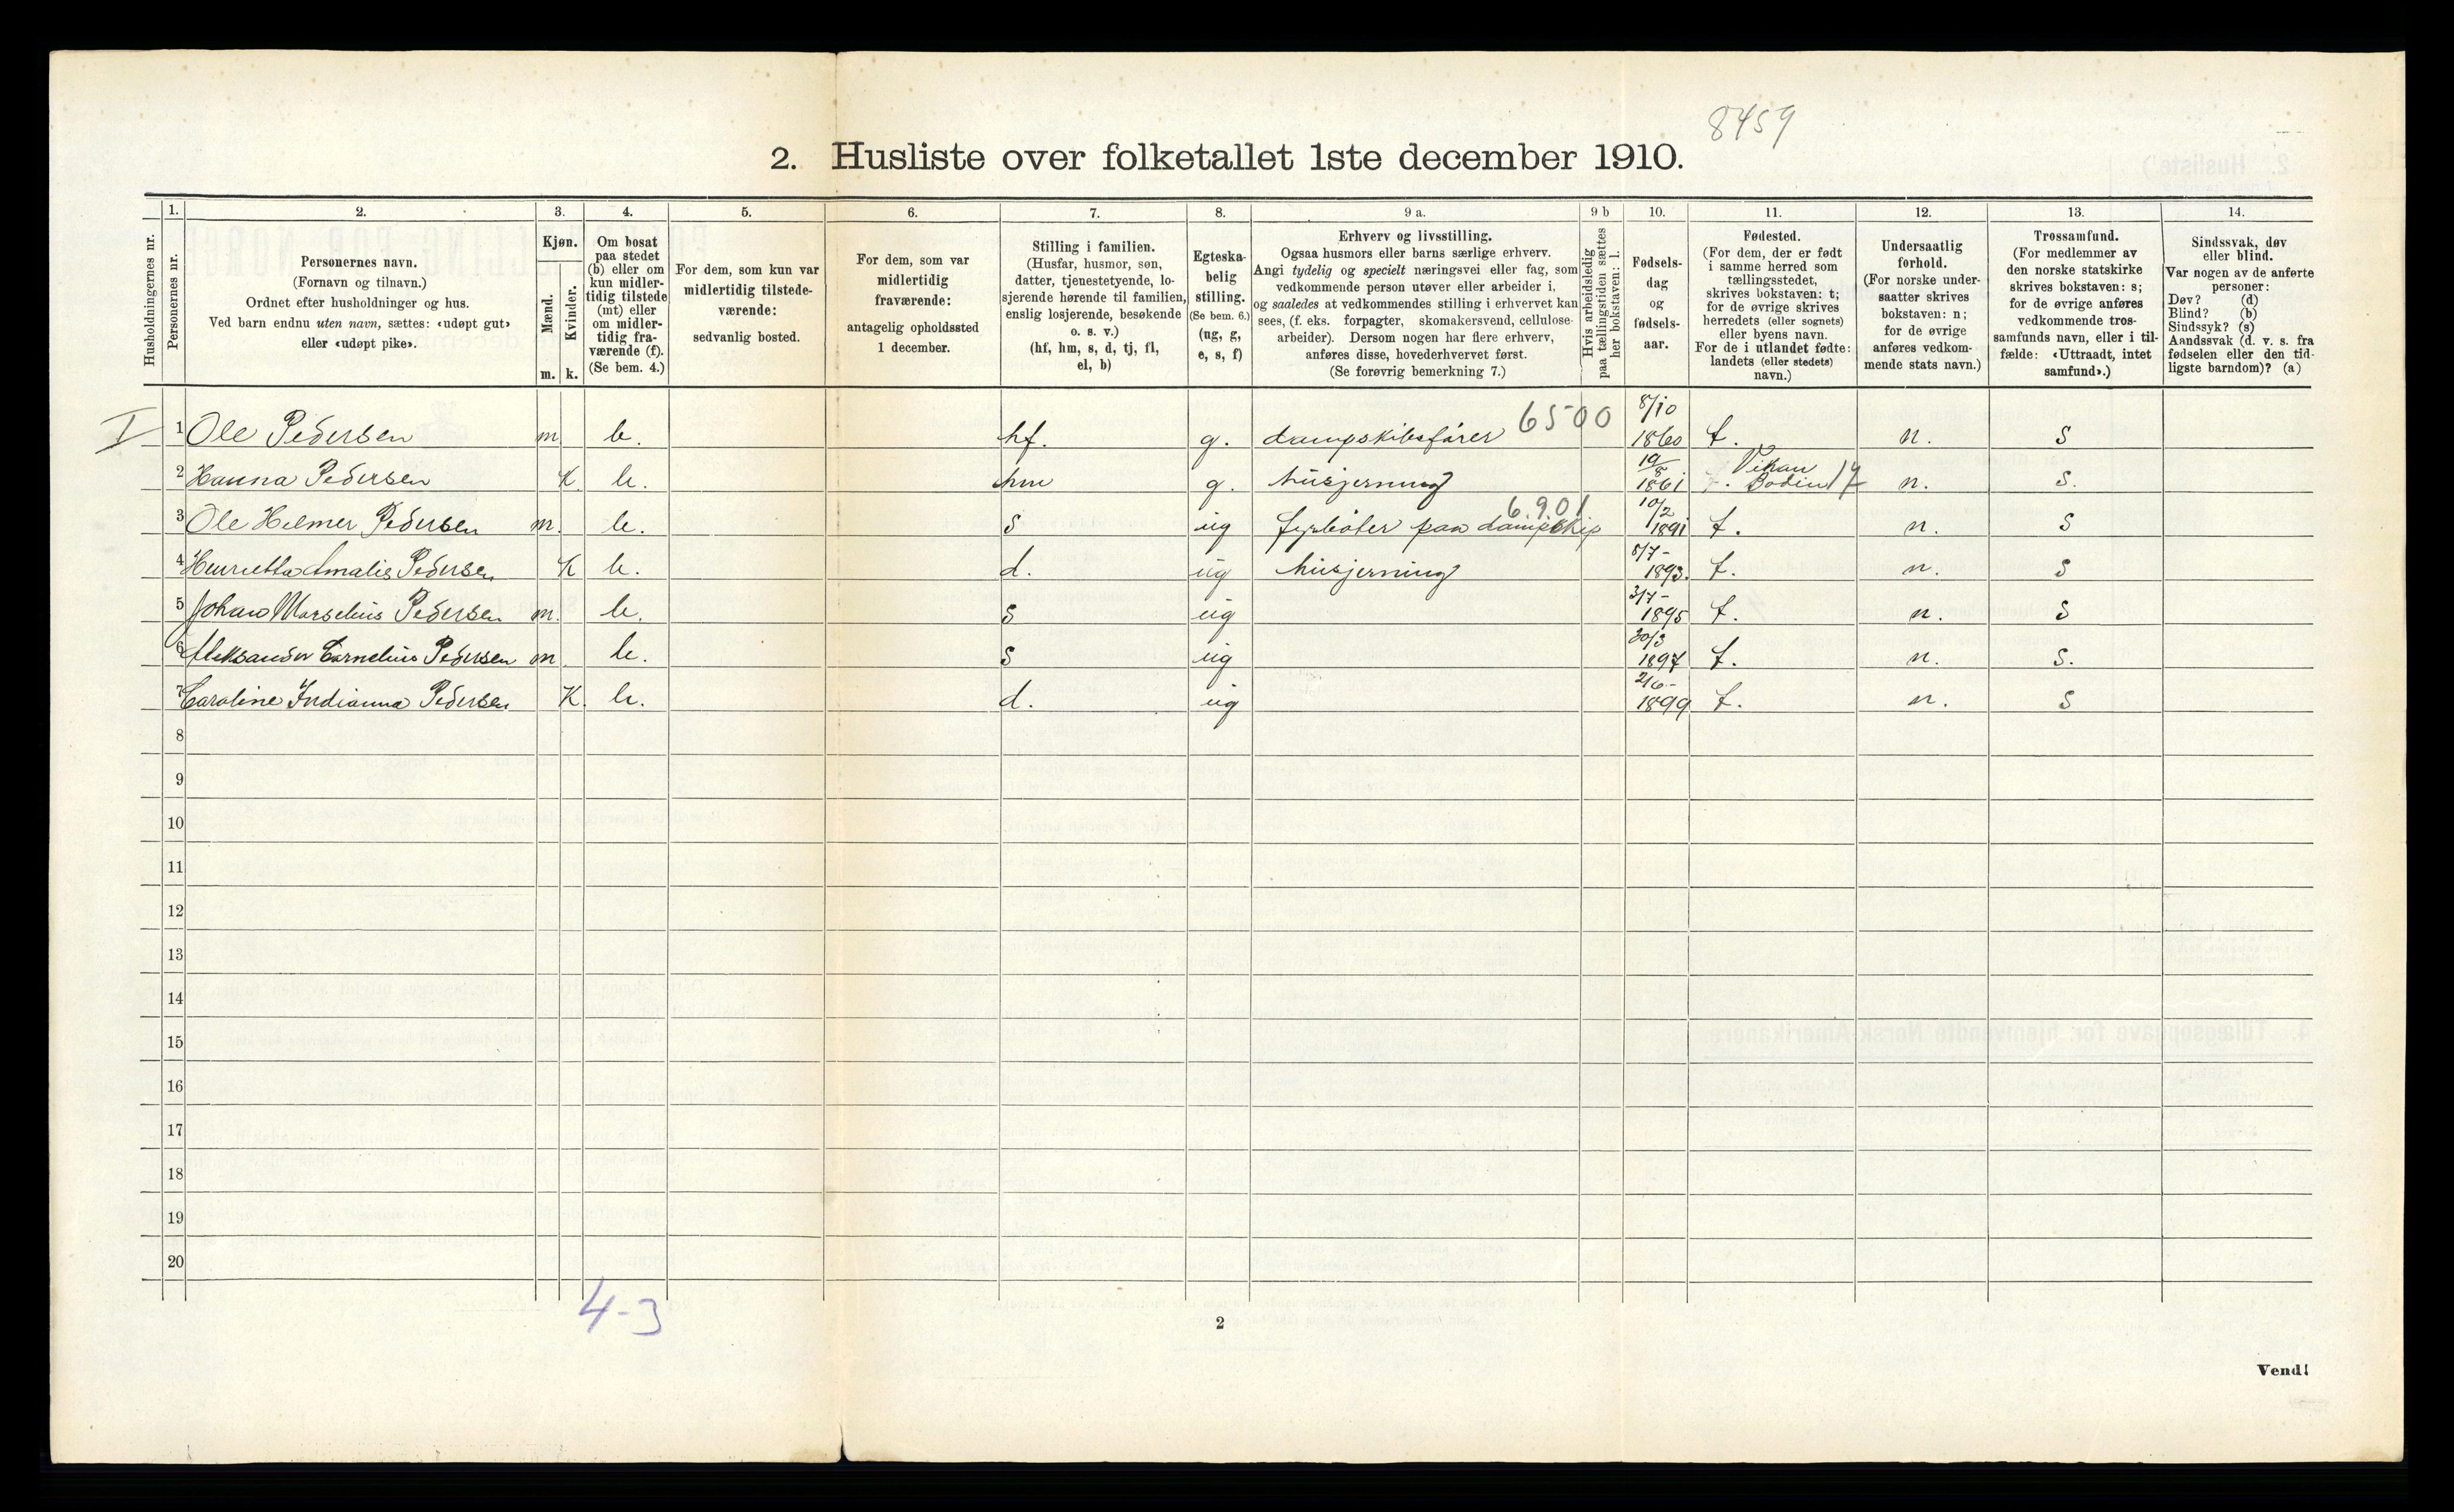 8459
2. Husliste over folketallet 1ste december 1910.
Husholdningernes nr.
1.
Personernes nr.
2.
Personernes navn.
(Fornavn og tilnavn.)
Ordnet efter husholdninger og hus.
Ved barn endnu uten navn, sættes: «udøpt gut»
eller «udøpt pike».
3.
Kjøn.
Mænd.
Kvinder.
m. k.
4.
Om bosat
paa stedet
(b) eller om
kun midler-
tidig tilstede
(mt) eller
om midler-
tidig fra-
værende (f).
(Se bem. 4.)
5.
For dem, som kun var
midlertidig tilstede-
værende:
sedvanlig bosted.
6.
For dem, som var
midlertidig
fraværende:
antagelig opholdssted
1 december.
7.
Stilling i familien.
(Husfar, husmor, søn,
datter, tjenestetyende, lo-
sjerende hørende til familien,
enslig losjerende, besøkende
o. s. v.)
(hf, hm, s, d, tj, fl,
el, b)
8.
Egteska-
belig
stilling.
(Se bem. 6.)
(ug, g,
e, s, f)
9 a.
Erhverv og livsstilling.
Ogsaa husmors eller barns særlige erhverv.
Angi tydelig og specielt næringsvei eller fag, som
vedkommende person utøver eller arbeider i,
og saaledes at vedkommendes stilling i erhvervet kan
sees, (f. eks. forpagter, skomakersvend, cellulose-
arbeider). Dersom nogen har flere erhverv,
anføres disse, hovederhvervet først.
(Se forøvrig bemerkning 7.)
9 b
Hvis arbeidsledig
paa tællingstiden sættes
her bokstaven: l.
10.
Fødsels-
dag
og
fødsels-
aar.
11.
Fødested.
(For dem, der er født
i samme herred som
tællingsstedet,
skrives bokstaven: t;
for de øvrige skrives
herredets (eller sognets)
eller byens navn.
For de i utlandet fødte:
landets (eller stedets)
navn.)
12.
Undersaatlig
forhold.
(For norske under-
saatter skrives
bokstaven: n;
for de øvrige
anføres vedkom-
mende stats navn.)
13.
Trossamfund.
(For medlemmer av
den norske statskirke
skrives bokstaven: s;
for de øvrige anføres
vedkommende tros-
samfunds navn, eller i til-
fælde: «Uttraadt, intet
samfund».)
14.
Sindssvak, døv
eller blind.
Var nogen av de anførte
personer:
Døv? (d)
Blind? (b)
Sindssyk? (s)
Aandssvak (d. v. s. fra
fødselen eller den tid-
ligste barndom)? (a)
I 1 Ole Pedersen m b. hf. g. dampskibsfører 6500 8/10 1860 t. n. S
2 Hanna Pedersen K b. hm g. husjerning 19/8 1861 Bodin 17 n. S.
3 Ole Helmer Pedersen m. b. S ug fyrbøter paa dampskip 6.901 10/2 1891 t. n. S
4 Henrietta Amalie Pedersen K b. d. ug husjerning 8/7- 1893. t. n. S
5 Johan Marselius Pedersen m. b. S ug 3/7- 1895 t. n. S
6 Aleksander Cornelius Pedersen m b. S ug 30/3 1897 t. n. S.
7 Caroline Indianna Pedersen K. b. d. ug 2/6- 1899 t. n. S
8
9
10
11
12
13
14
15
16
17
18
19
20
4-3
2
Vend!